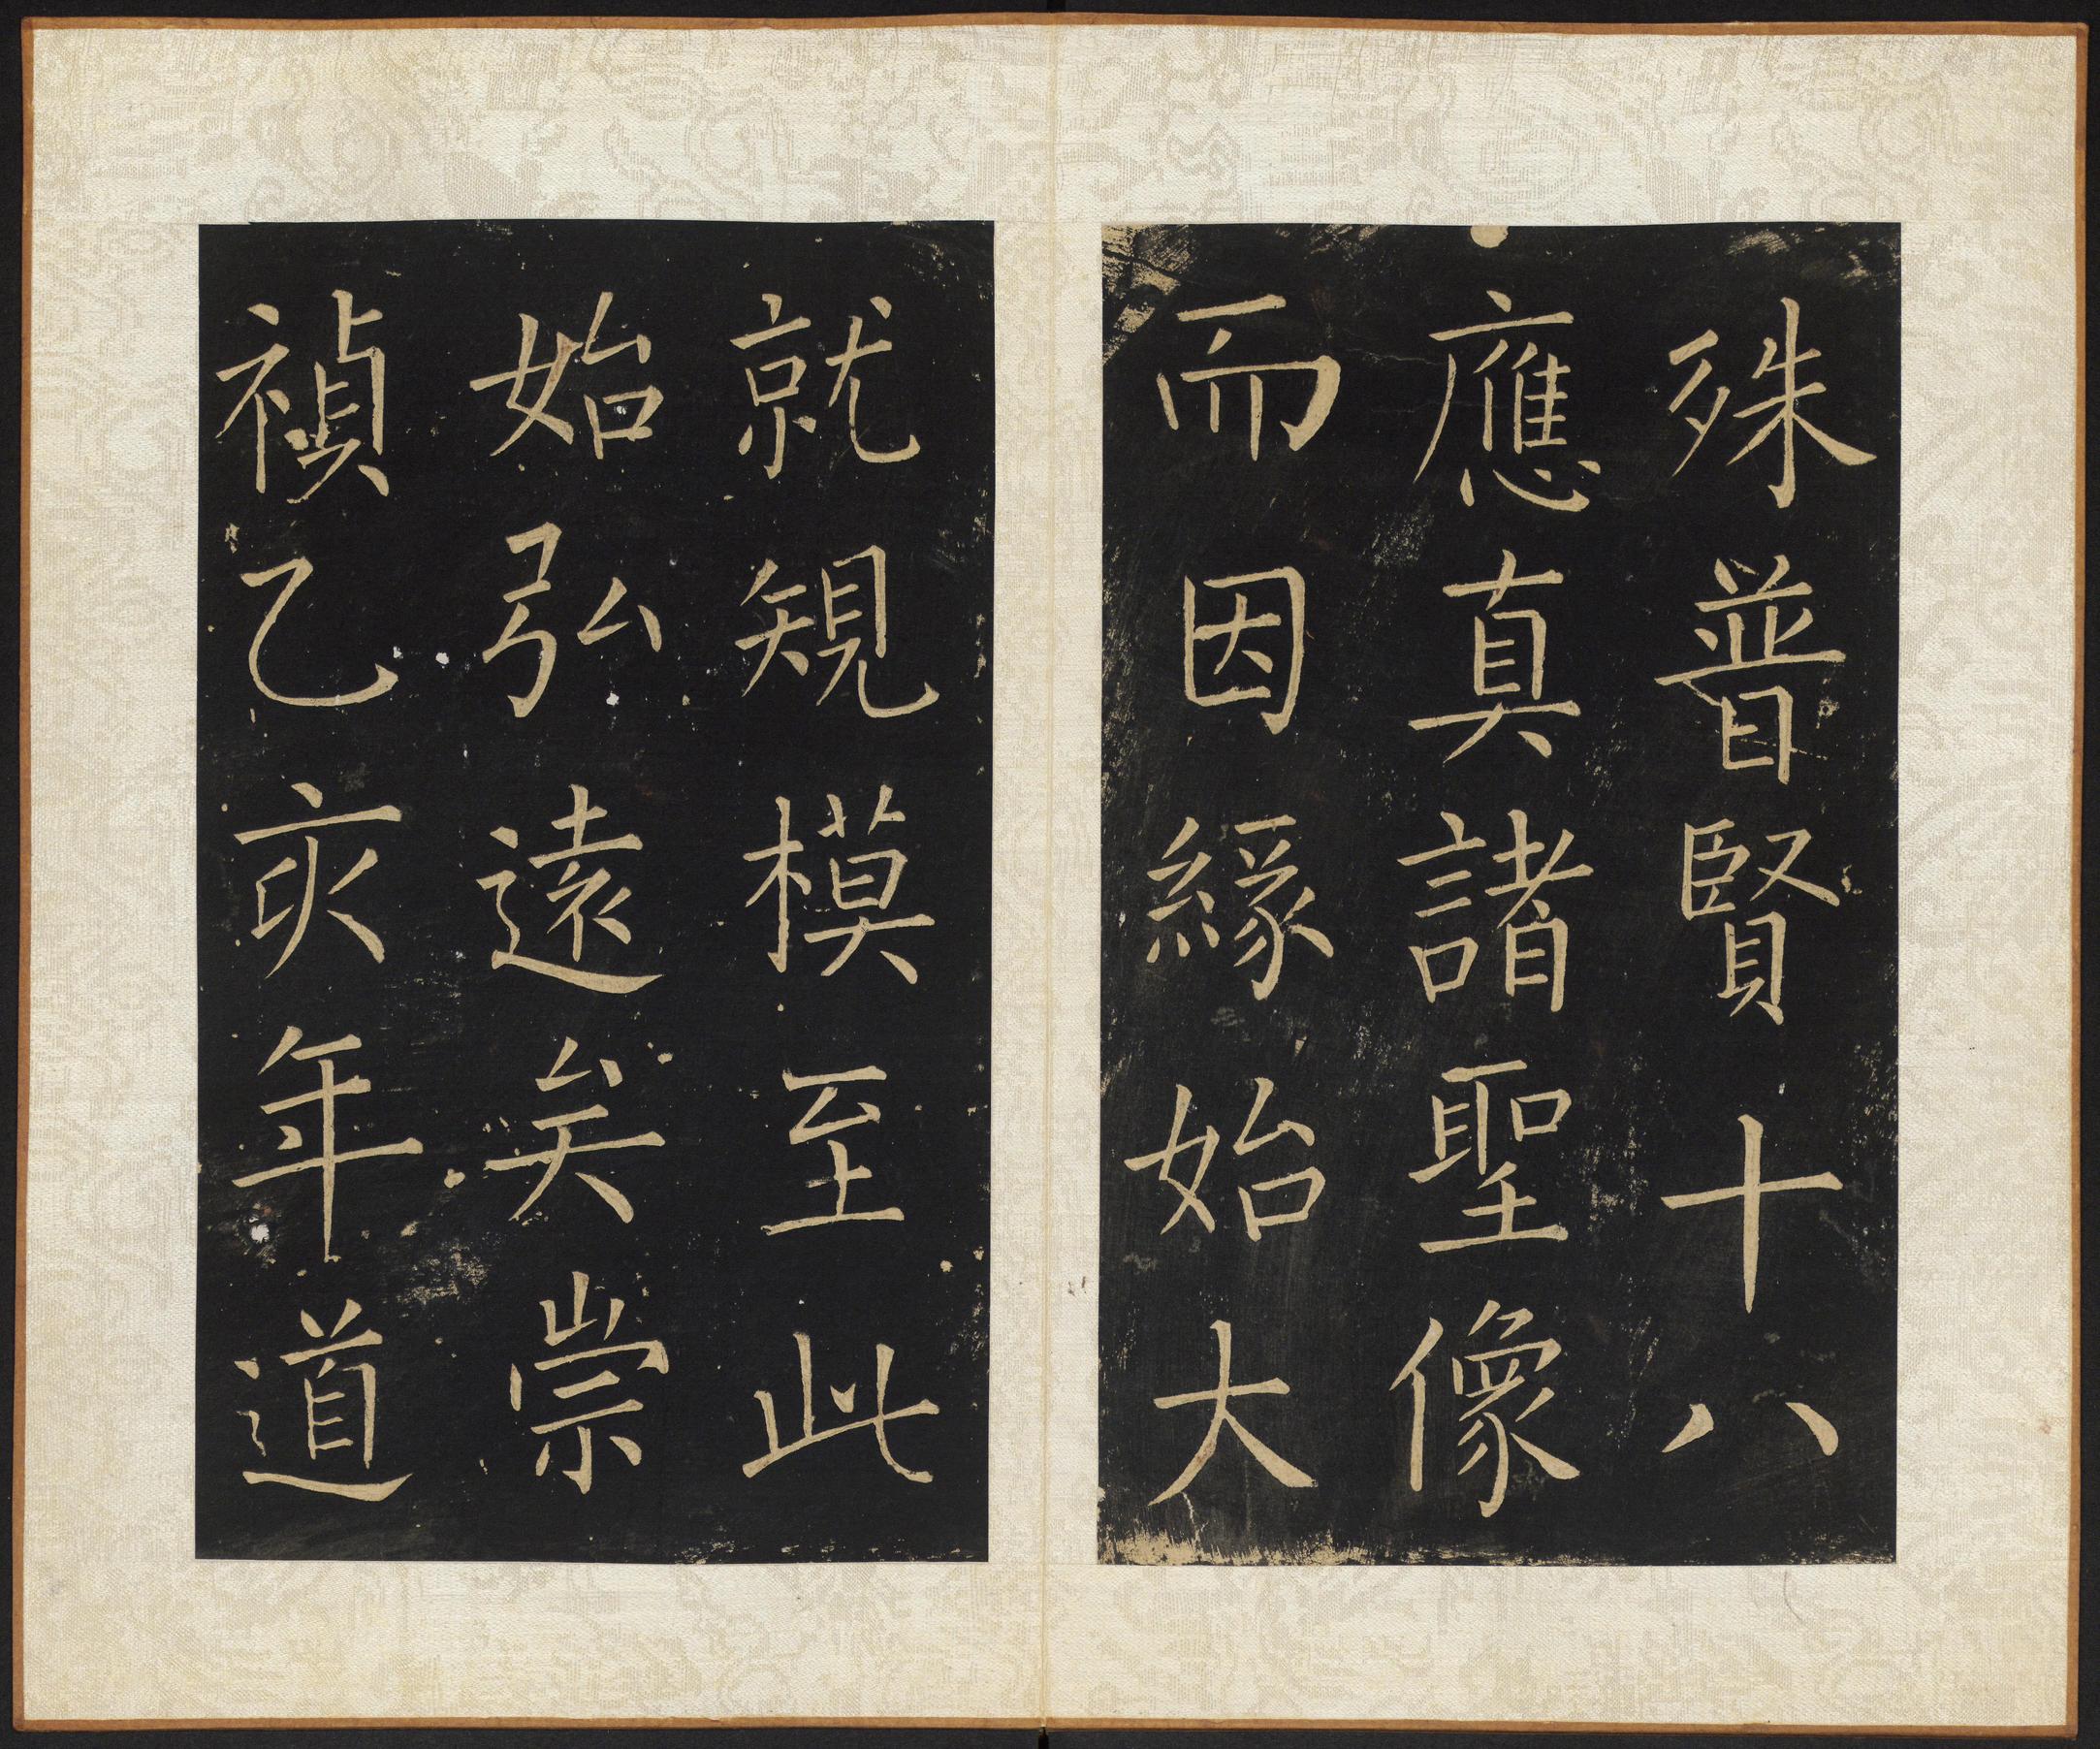 殊普賢十八
應真諸聖像
而因緣始大
就規模至此
始弘遠矣崇
禎乙亥年道